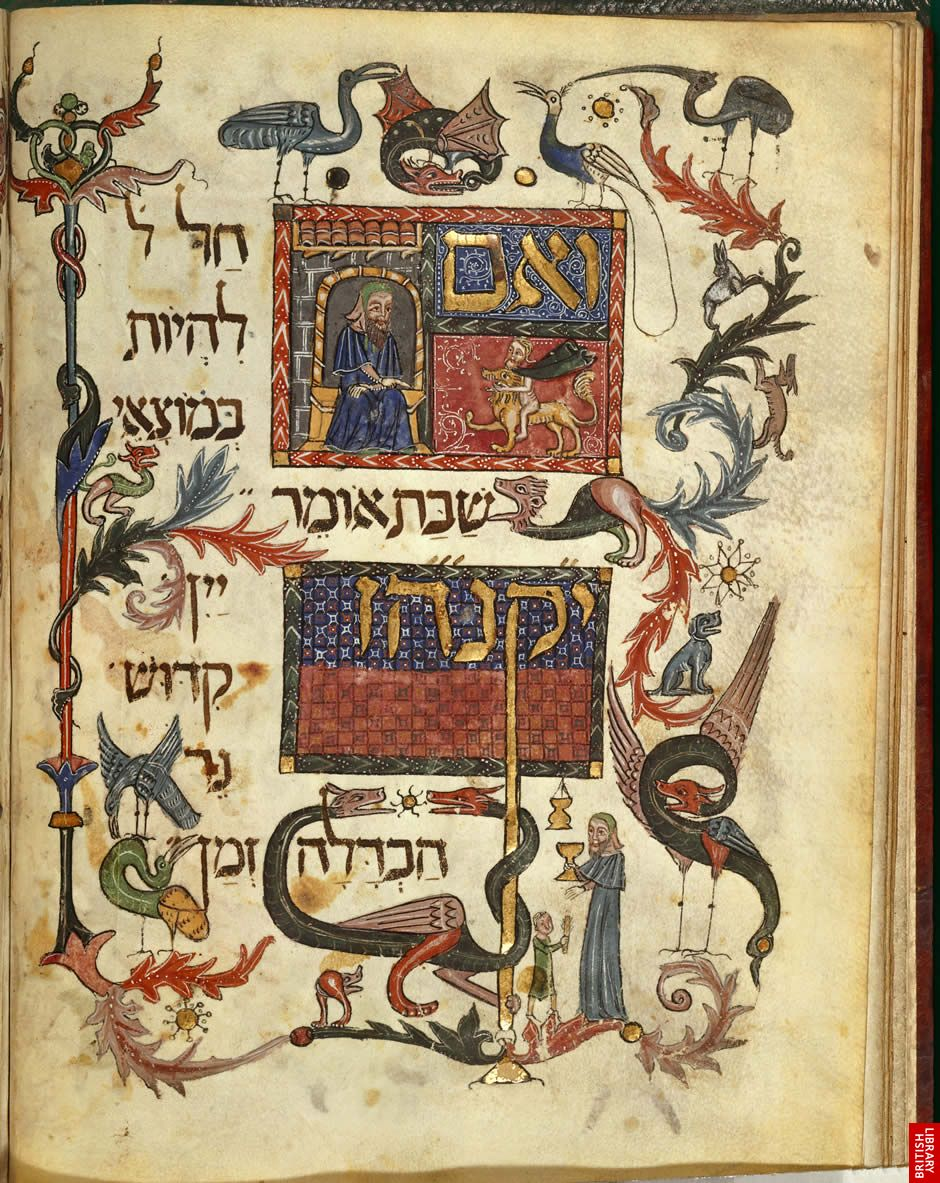 ואם
חַל ל
לִהְיוֹת
בְּמוֹצָאֵי
שַׁבַּת אוֹמֵר
יקנהז
יַיִן
קִדּוּשׁ
נֵר
הַבְדָּלָה זְמַן
BRITISH
LIBRARY